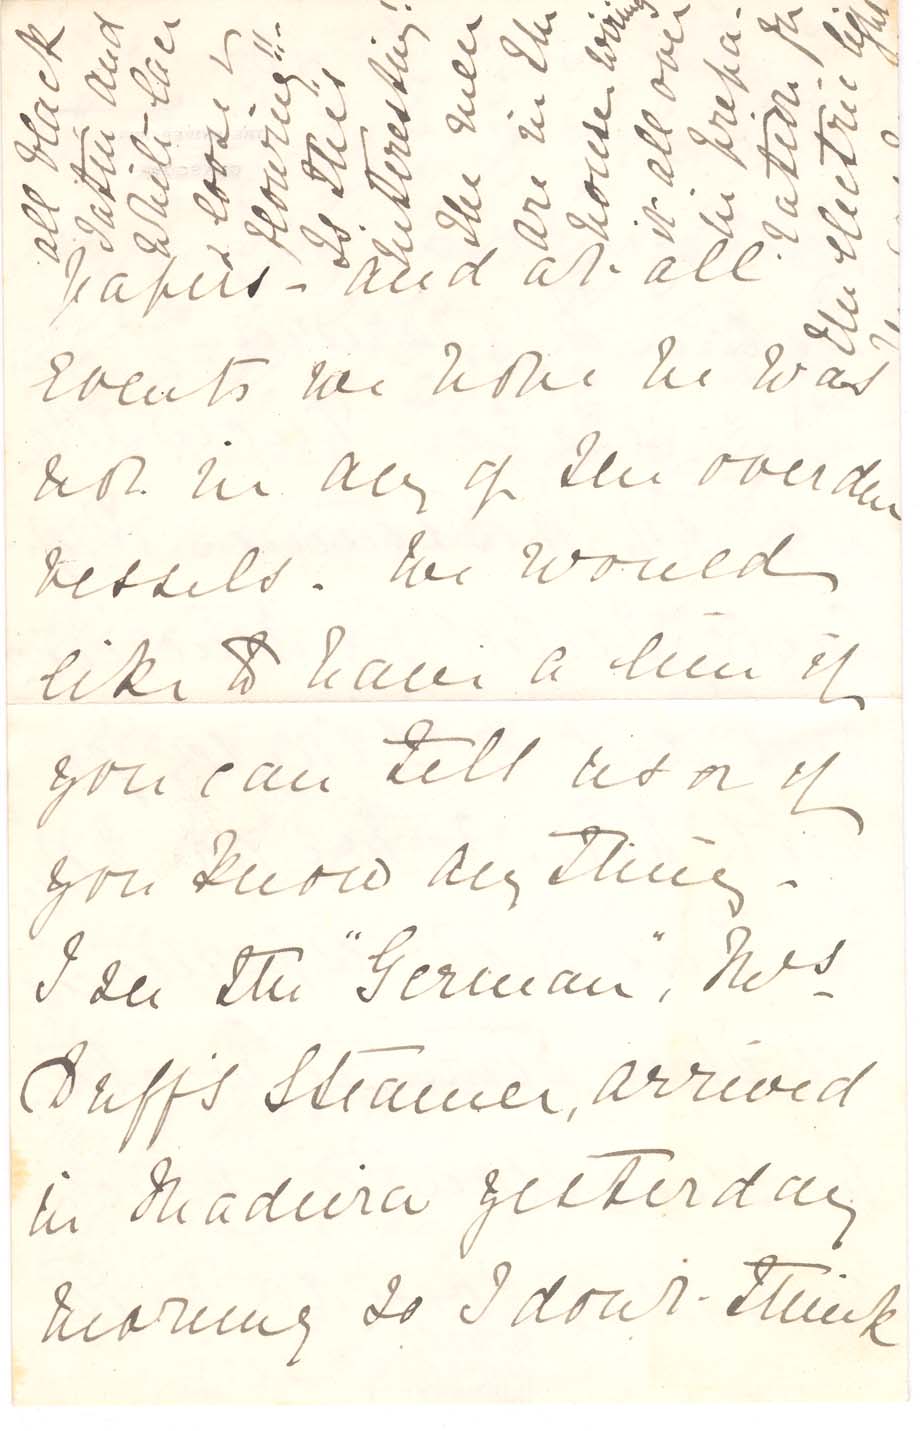 all black
satin and
white lace
loose &
flowing!!.
Is this
interesting!
The men
are in the
house wiring
it all over
in prepa-
ration for
the electric light
papers - and at all
events we hope he was
not in any of the overdue
vessels. We would
like to have a line if
you can tell us or if
you know anything -
I see the "German", Mrs
Duff's Steamer, arrived
in Madeira yesterday
morning so I don't think